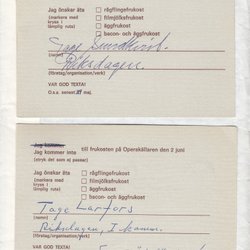 Jag önskar äta
(markera med
kryss i
lämplig ruta)
rågflingefrukost
filmjölksfrukost
äggfrukost
bacon- och äggfrukost
Tage Sundkvist.
Riksdagen.
(företag/organisation/verk)
VAR GOD TEXTA!
O.s.a. senast maj.
Jag kommer
Jag kommer inte
till frukosten på Operakällaren den 2 juni
(stryk det som ej passar)
Jag önskar äta
(markera med
kryss i
lämplig ruta)
rågflingefrukost
filmjölksfrukost
äggfrukost
bacon- och äggfrukost
Tage Larfors
(namn)
Riksdagen, I kamm.
(företag/organisation/verk)
VAR GOD TEXTA!